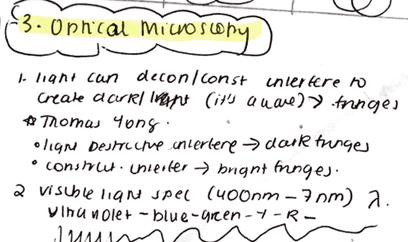 3. Optical Microscopy
1. light can decon/const interfere to
create dark/light (it's a wave) → fringes
* Thomas Yong.
• light Destructive interfere → dark fringes
• construct. interfer → bright fringes.
2 visible light spec (400nm - 7nm) λ.
Ultraviolet - blue - green - Y - R -